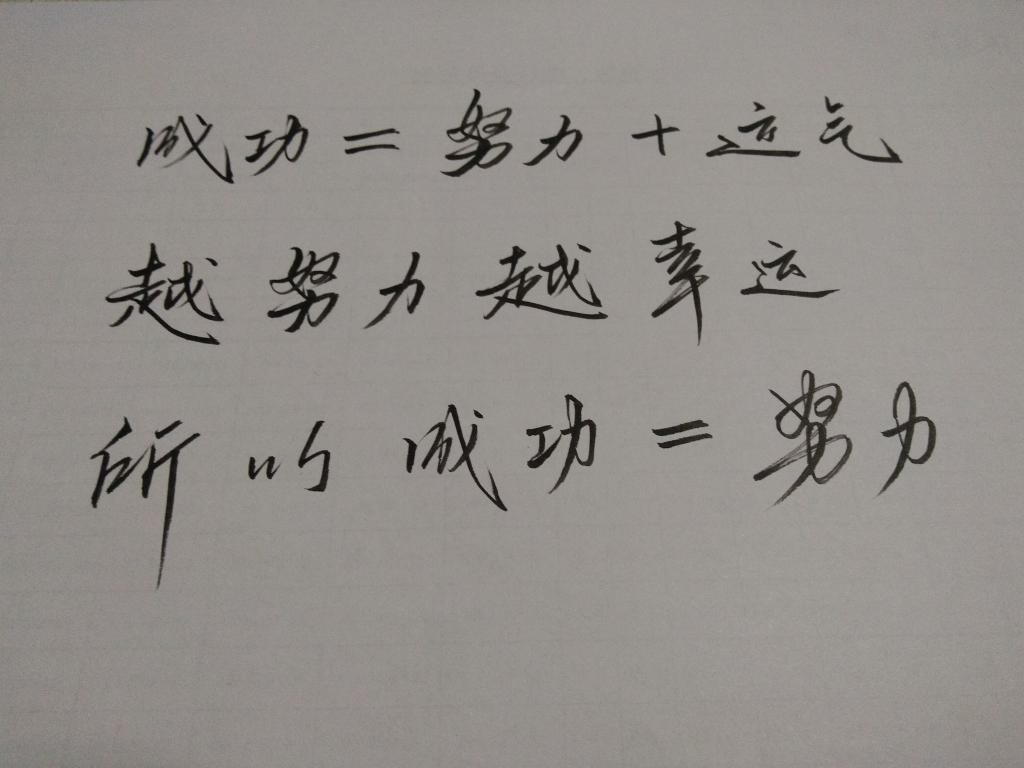 成功=努力+运气
越努力越幸运
所以成功=努力